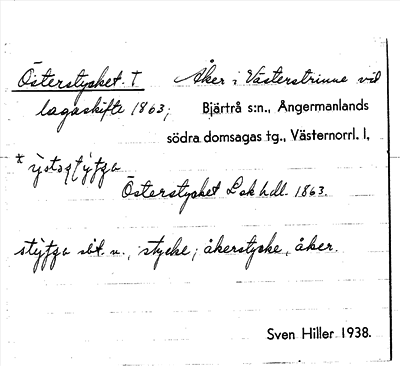 Österstycket. T Åker i Västerstrinne vid
lagaskifte 1863; Bjärtrå s:n., Ångermanlands
södra domsagas tg., Västernorrl. l,
Österstycket Lsk hdl. 1863.
sbt. n., stycke; åkerstycke, åker.
Sven Hiller 1938.